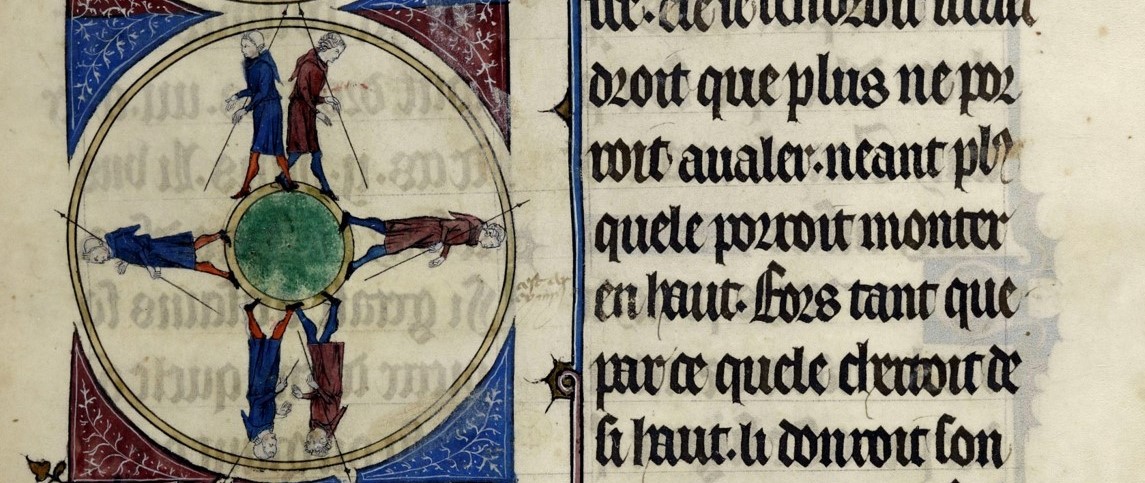 droit que plus ne por
roit aualer. neant pl9
quele porroit monter
en haut. Fors tant que
par ce quele cherroit de
si haut. li donroit son